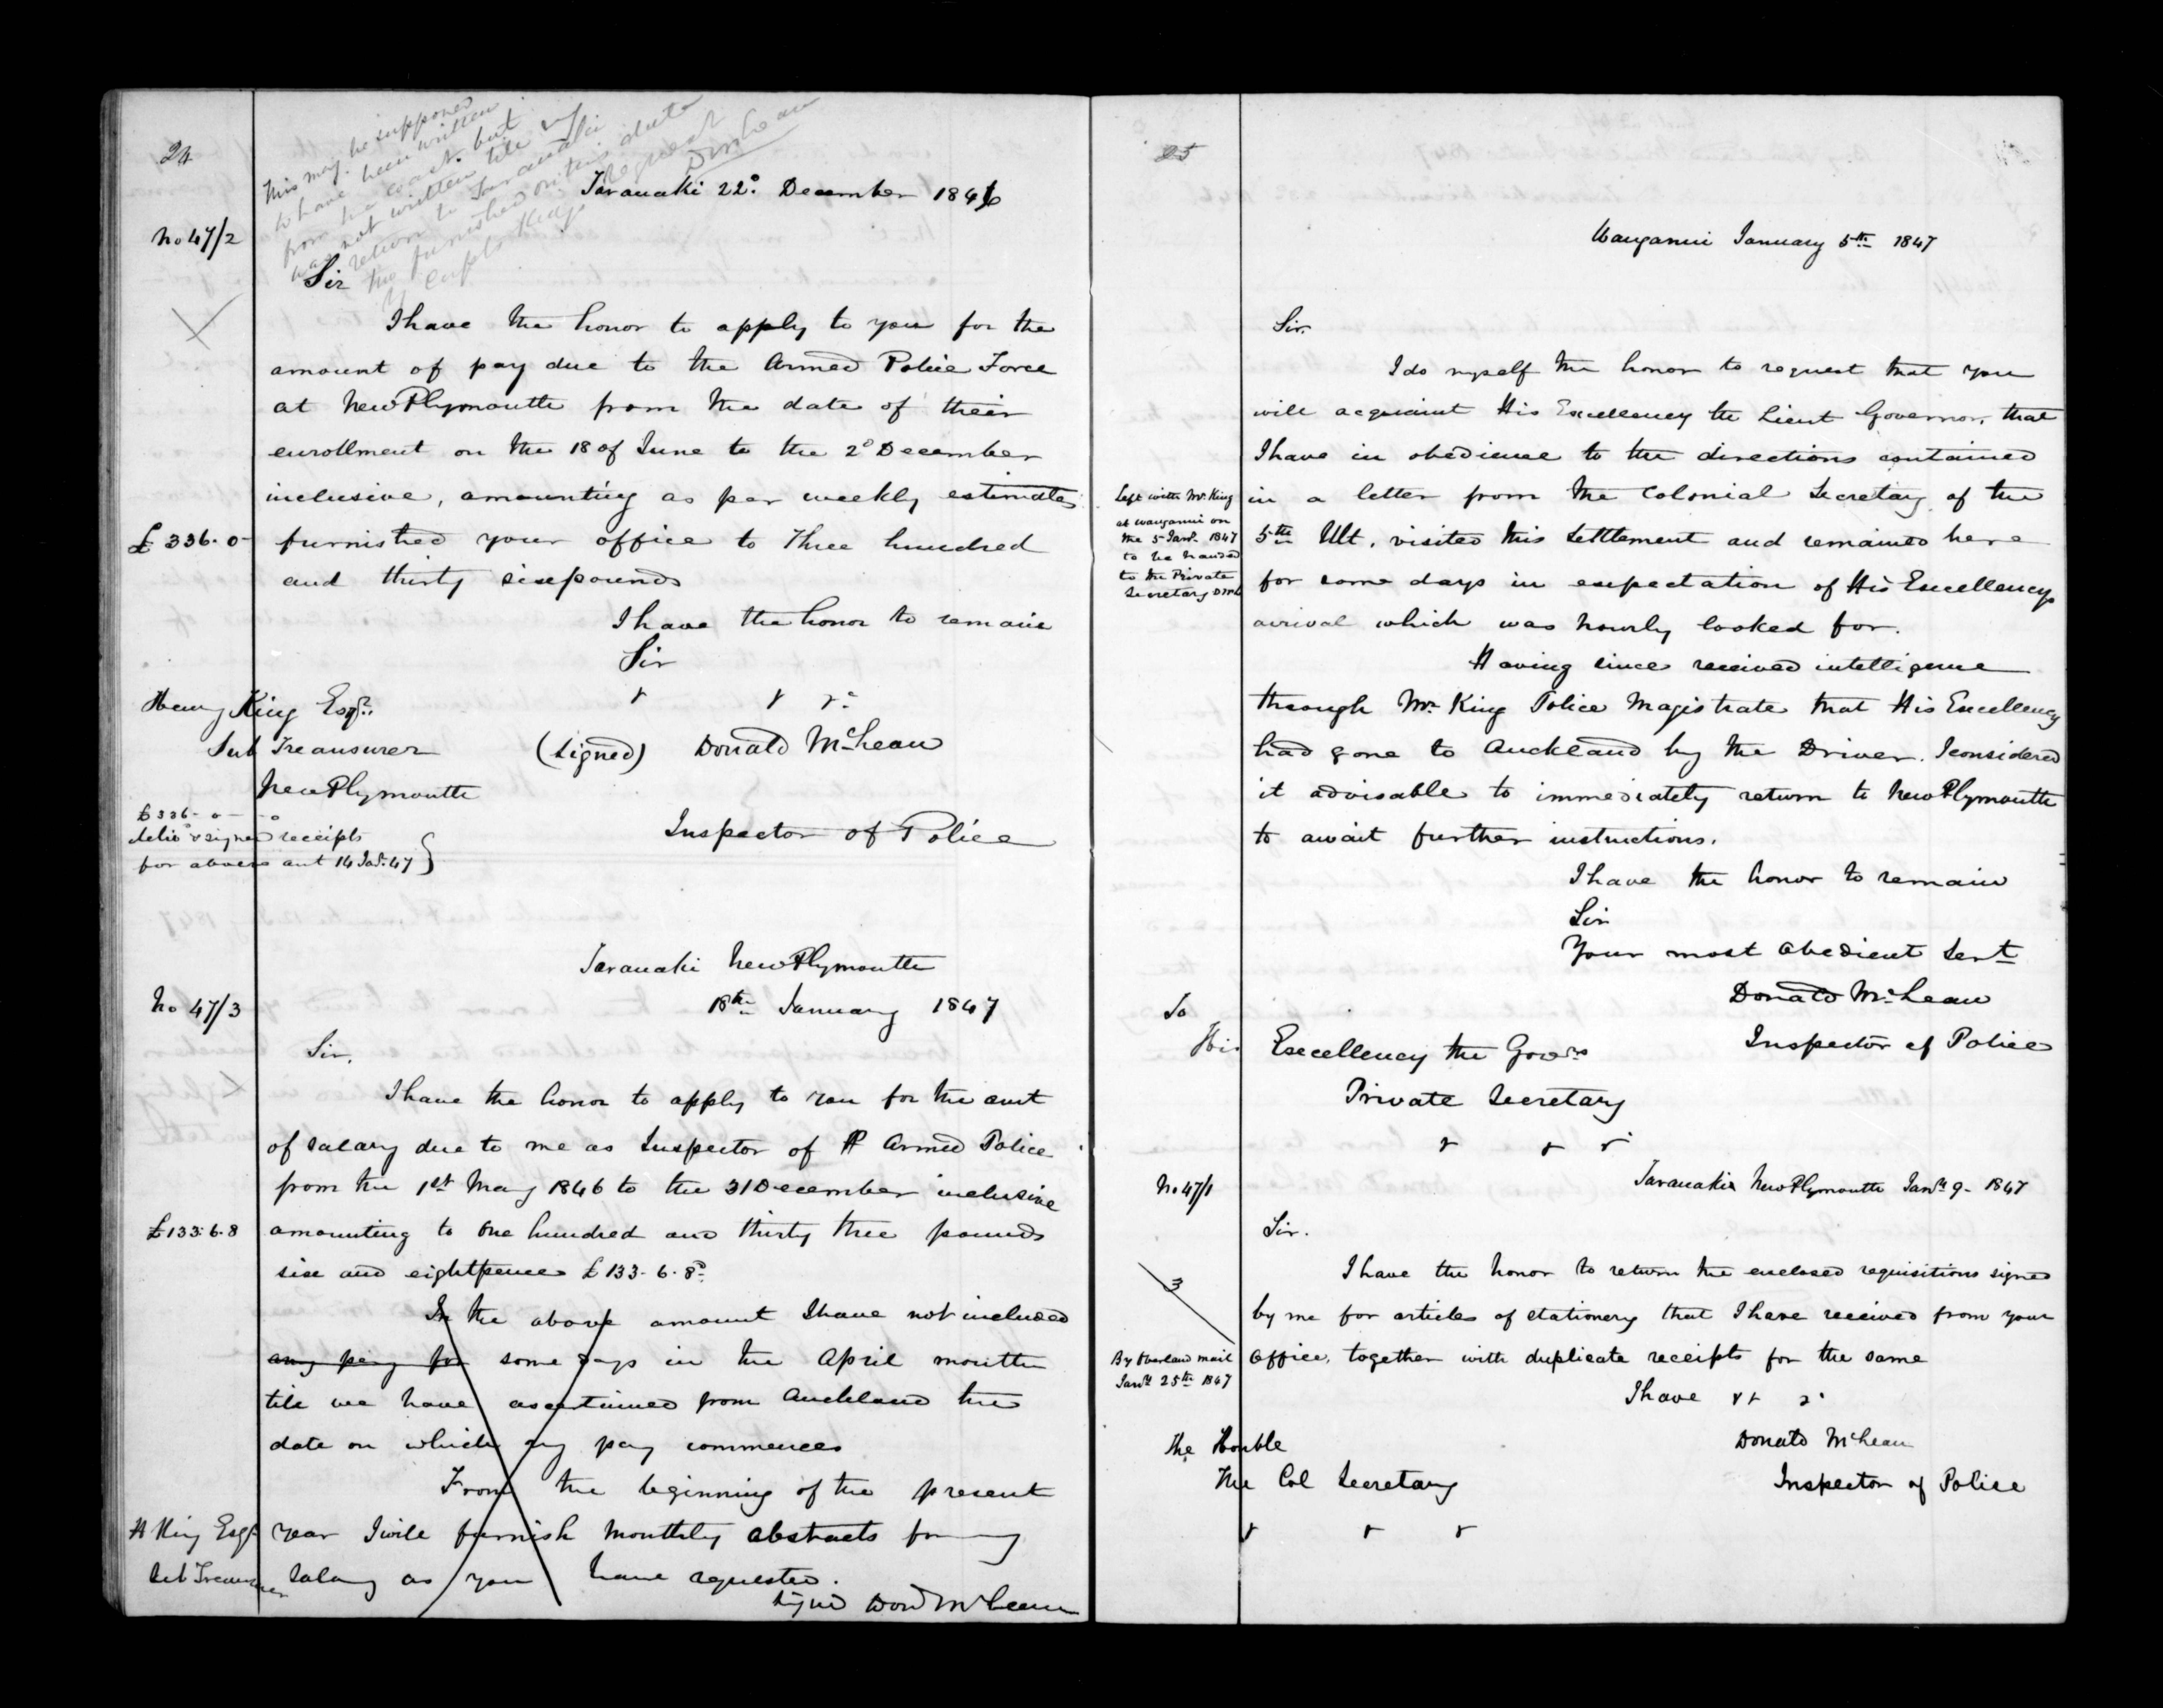 24
This may be supposed
to have been written
from the coast. but
was not written till my
return to Taranaki
the furnished on this date
request
D McLean
Taranaki 22d. December 1846
No 47/2
Sir
I have the honor to apply to you for the
amount of pay due to the Armed Police Force
at New Plymouth from the date of their
enrollment on the 18 of June to the 2d December
inclusive, amounting as per weekly estimates
£336.0- furnished your office to Three hundred
and thirty six pounds
I have the honor to remain
Sir
&c &c &c
Henry King Esqr.
Sub Treausurer
New Plymouth
(Signed) Donald McLean
Inspector of Police
£336-0-0
Deliv'd & signed receipts
for above amt 14 Jany. 47
Taranaki New Plymouth
18th January 1847
No 47/3
Sir,
I have the honor to apply to you for the amt
of salary due to me as Inspector of Armed Police
from the 1st May 1846 to the 31 December inclusive
£133.6.8 amounting to One hundred and thirty three pounds
six and eightpence £133.6.8d.
In the above amount I have not included
any pay for some days in the April month
till we have ascertained from Auckland the
date on which my pay commences
From the beginning of the present
year I will furnish Monthly abstracts for my
Salary as you have requested.
H King Esqr
Sub Treasurer
Signed Dond McLean
25
Wanganui January 5th 1847
Sir.
I do myself the honor to request that you
will acquaint His Excellency the Lieut Governor, that
I have in obedience to the directions contained
in a letter from the Colonial Secretary of the
5th Ult. visited this Settlement and remained here
for some days in expectation of His Excellencys
arrival which was hourly looked for.
Left with Mr. King
at Wanganui on
the 5 Jany. 1847
to be handed
to the Private
Secretary DMcL
Having since received intelligence
through Mr. King Police Magistrate that His Excellency
had gone to Auckland by the Driver. I considered
it advisable to immediately return to New Plymouth
to await further instructions.
I have the honor to remain
Sir
Your most Obedient Servt
Donald McLean
Inspector of Police
To
His Excellency the Govrs
Private Secretary
&c &c &c
Taranaki New Plymouth Jany 9- 1847
No 47/1
Sir.
I have the honor to return the enclosed requisitions signed
by me for articles of stationery that I have received from your
Office, together with duplicate receipts for the same
3
By Overland mail
Jany 25th 1847
I have &c &c
Donald McLean
Inspector of Police
The Honble
The Col Secretary
&c &c &c